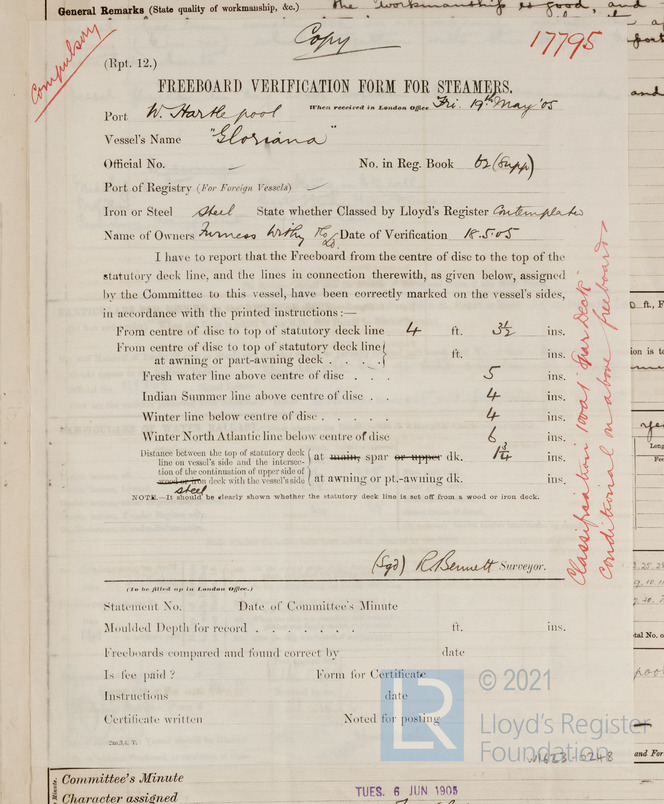 General Remarks (State quality of workmanship, &c.) The workmanship is good, and
Compulsory
Copy
17795
(Rpt. 12.)
FREEBOARD VERIFICATION FORM FOR STEAMERS.
Port W. Hartlepool When received in London Office Fri. 19th May '05
Vessel's Name "Gloriana"
Official No. — No. in Reg. Book 62 (Supp)
Port of Registry (For Foreign Vessels) —
Iron or Steel Steel State whether Classed by Lloyd's Register Contemplated
Name of Owners Furness Withy & Co Ld. Date of Verification 18.5.05
I have to report that the Freeboard from the centre of disc to the top of the
statutory deck line, and the lines in connection therewith, as given below, assigned
by the Committee to this vessel, have been correctly marked on the vessel's sides,
in accordance with the printed instructions:—
From centre of disc to top of statutory deck line 4 ft. 3½ ins.
From centre of disc to top of statutory deck line
at awning or part-awning deck . . . . ft. ins.
Fresh water line above centre of disc . . . 5 ins.
Indian Summer line above centre of disc . . 4 ins.
Winter line below centre of disc . . . . . 4 ins.
Winter North Atlantic line below centre of disc 6 ins.
Distance between the top of statutory deck
line on vessel's side and the intersec-
tion of the continuation of upper side of
wood or iron deck with the vessel's side
steel
at main, spar or upper dk. 1¾ ins.
at awning or pt.-awning dk. ins.
NOTE.—It should be clearly shown whether the statutory deck line is set off from a wood or iron deck.
Classification 100A1 Spar Deck
conditional on above freeboards
(Sgd) R. Bennett Surveyor.
(To be filled up in London Office.)
Statement No. Date of Committee's Minute
Moulded Depth for record . . . . . . . ft. ins.
Freeboards compared and found correct by date
Is fee paid ? Form for Certificate
Instructions date
Certificate written Noted for posting
LR
© 2021
Lloyd's Register
Foundation
Committee's Minute
TUES. 6 JUN 1905
Character assigned